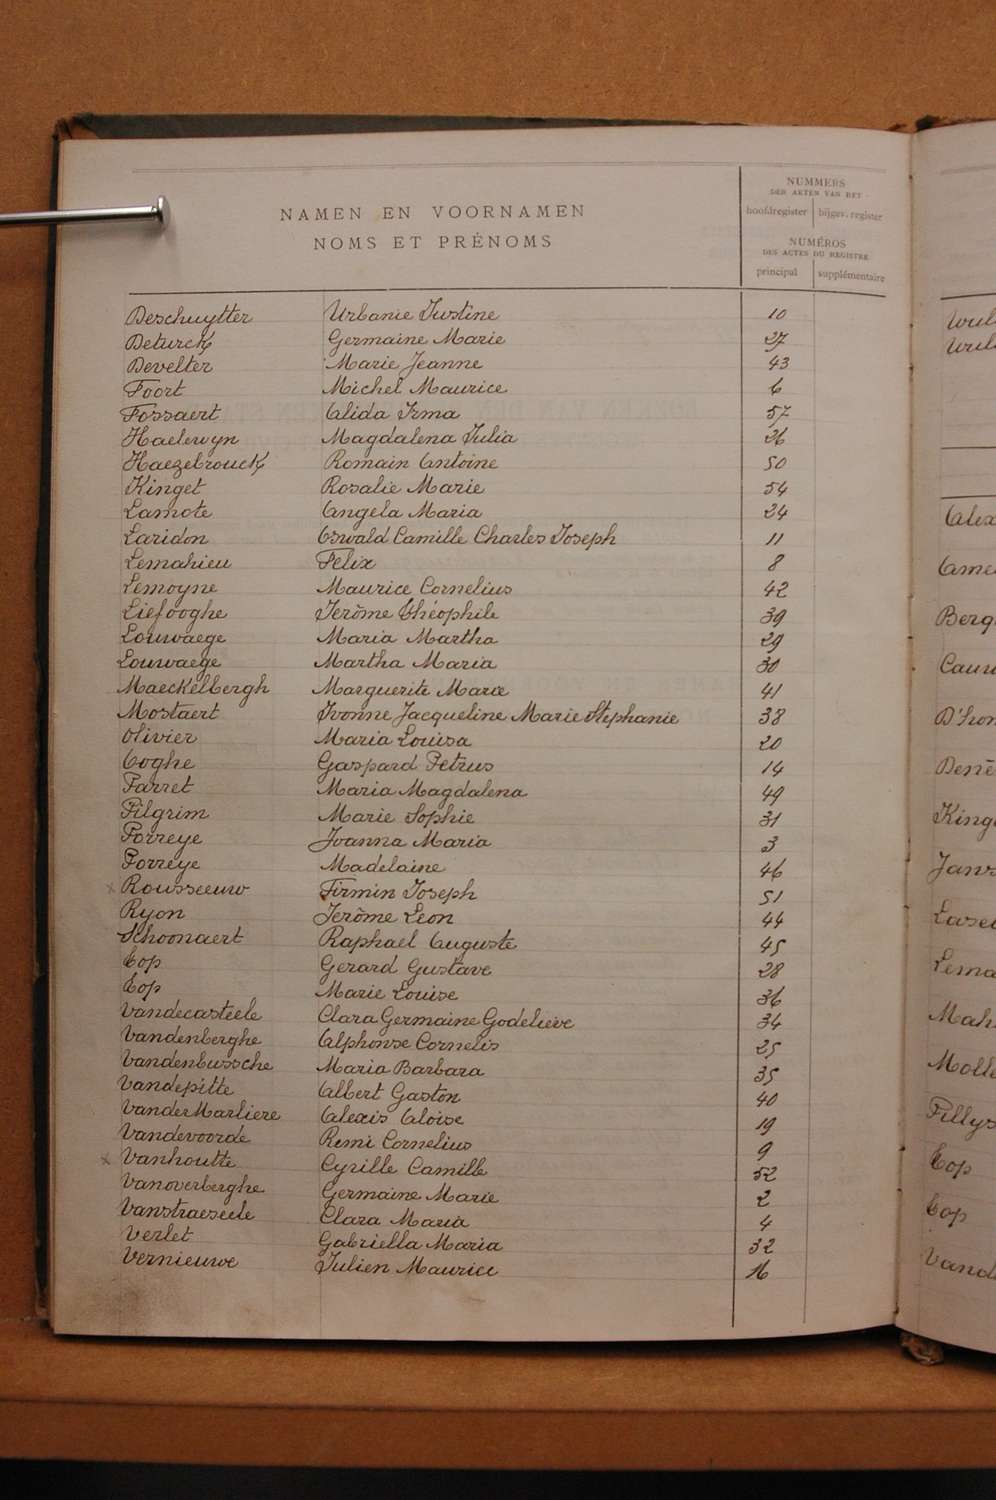 NAMEN EN VOORNAMEN
NOMS ET PRÉNOMS
NUMMERS
DER AKTEN VAN HET
hoofdregister bijgev. register
NUMÉROS
DES ACTES DU REGISTRE
principal supplémentaire
Deschuytter Urbanie Justine 10
Deturck Germaine Marie 27
Develter Marie Jeanne 43
Foort Michel Maurice 6
Fossaert Alida Irma 57
Haelewyn Magdalena Julia 26
Haezebrouck Romain Antoine 50
Kinget Rosalie Marie 54
Lamote Angela Maria 24
Laridon Oswald Camille Charles Joseph 11
Lemahieu Felix 8
Lemoyne Maurice Cornelius 42
Liefooghe Jerôme Théophile 39
Louwaege Maria Martha 29
Louwaege Martha Maria 30
Maeckelbergh Marguerite Marie 41
Mostaert Ivonne Jacqueline Marie Stephanie 38
Olivier Maria Louisa 20
Ooghe Gaspard Petrus 14
Parret Maria Magdalena 49
Pilgrim Marie Sophie 31
Porreye Joanna Maria 3
Porreye Madelaine 46
x Rousseeuw Firmin Joseph 51
Ryon Jerôme Leon 44
Schoonaert Raphael Auguste 45
Top Gerard Gustave 28
Top Marie Louise 36
Vandecasteele Clara Germaine Godelieve 34
Vandenberghe Alphonse Cornelis 25
Vandenbussche Maria Barbara 35
Vandepitte Albert Gaston 40
VanderMarliere Alexis Aloise 19
Vandevoorde Remi Cornelius 9
x Vanhoutte Cyrille Camille 52
Vanoverberghe Germaine Marie 2
Vanstraeseele Clara Maria 4
Verlet Gabriella Maria 32
Vernieuwe Julien Maurice 16
Alex
Ame
Berg
D'hon
King
Jans
Lema
Mah
Molle
Pillys
Top
Top
Vand